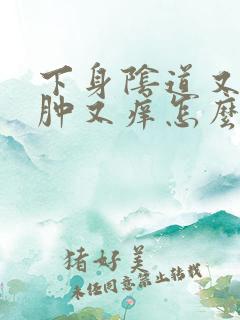 下身陰道又
肿又痒怎麽
猪好美
未经同意禁止转载